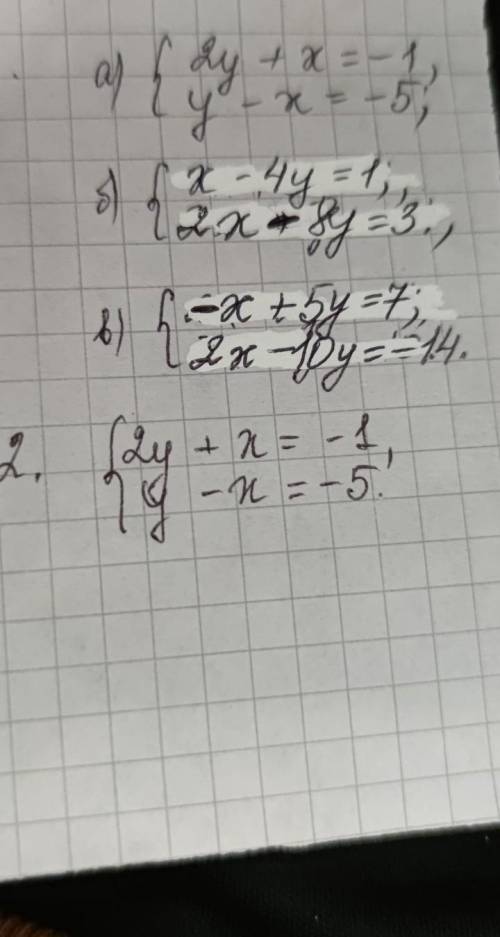 а) { 2y + x = -1,
y - x = -5;
б) { x - 4y = 1;,
2x - 8y = 3.,
в) { -x + 5y = 7;
2x - 10y = -14.
2. { 2y + x = -1,
y - x = -5.